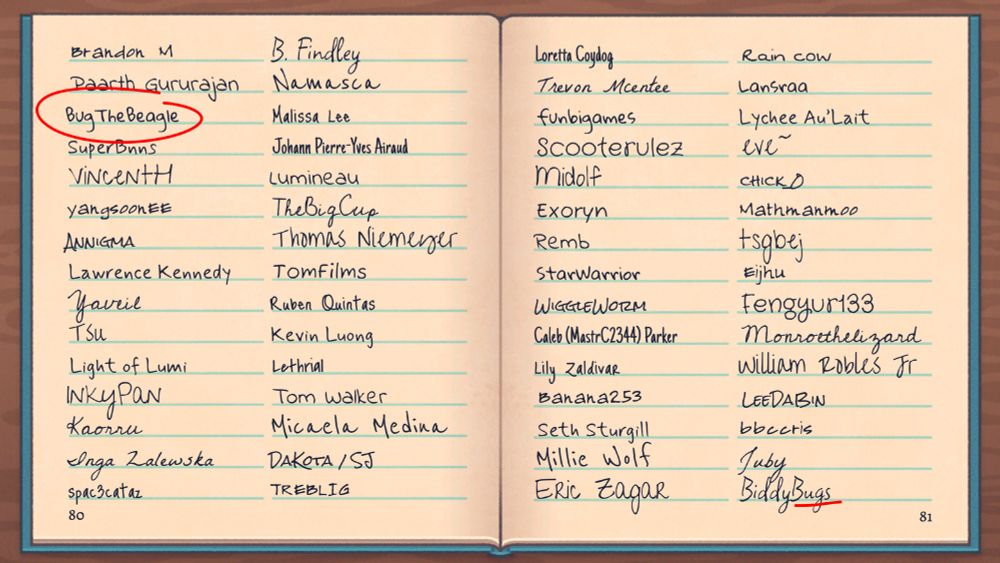 Brandon M
Paarth Gururajan
BugTheBeagle
SuperBnns
VINCENTH
yangsoonEE
ANNIGMA
Lawrence Kennedy
Yaveil
TSu
Light of Lumi
INKyPAN
Kaorru
Inga Zalewska
spac3cataz
80
B. Findley
Namasca
Malissa Lee
Johann Pierre-Yves Airaud
Lumineau
TheBigCup
Thomas Niemeyer
TomFilms
Ruben Quintas
Kevin Luong
Lethrial
Tom Walker
Micaela Medina
DAKOTA/SJ
TREBLIG
Loretta Coydog
Trevon Mcentee
funbigames
Scooterulez
Midolf
Exoryn
Remb
StarWarrior
WIGGLEWORM
Caleb (MastrC2344) Parker
Lily Zaldivar
Banana253
Seth Sturgill
Millie Wolf
Eric Zagar
Rain Cow
Lansraa
Lychee Au'Lait
eve~
CHICKO
Mathmanmoo
tsgbej
Eijhu
Fengyur133
Monroethelizard
William Robles Jr
LEEDABIN
bbccris
Juby
BiddyBugs
81